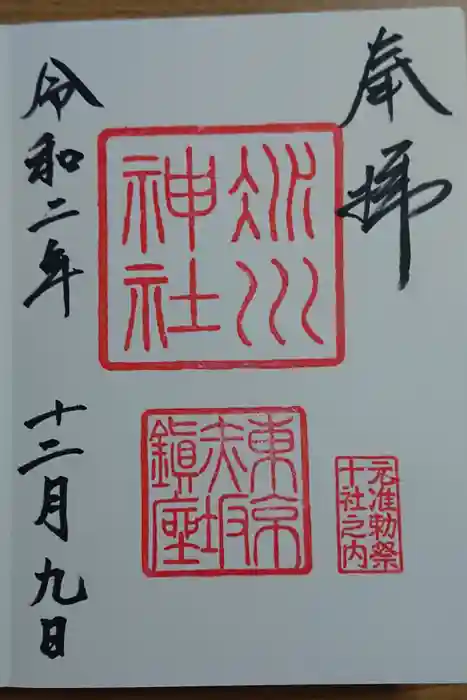 奉拝
氷川
神社
東京
赤坂
鎮座
元准勅祭
十社之内
令和二年
十二月九日